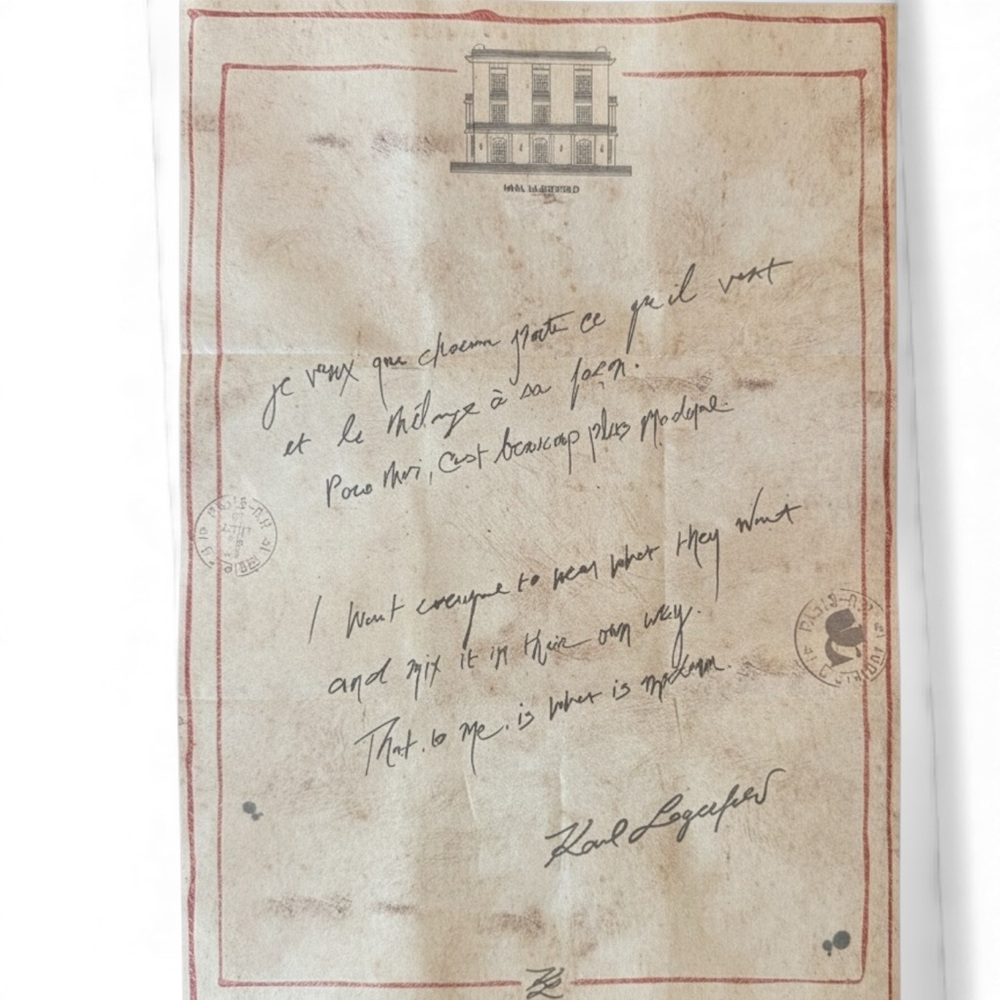 je veux que chacun porte ce qu'il veut
et le mélange à sa façon.
Pour moi, c'est beaucoup plus moderne.
I want everyone to wear what they want
and mix it in their own way.
That, to me, is what is modern.
Karl Lagerfeld
KL